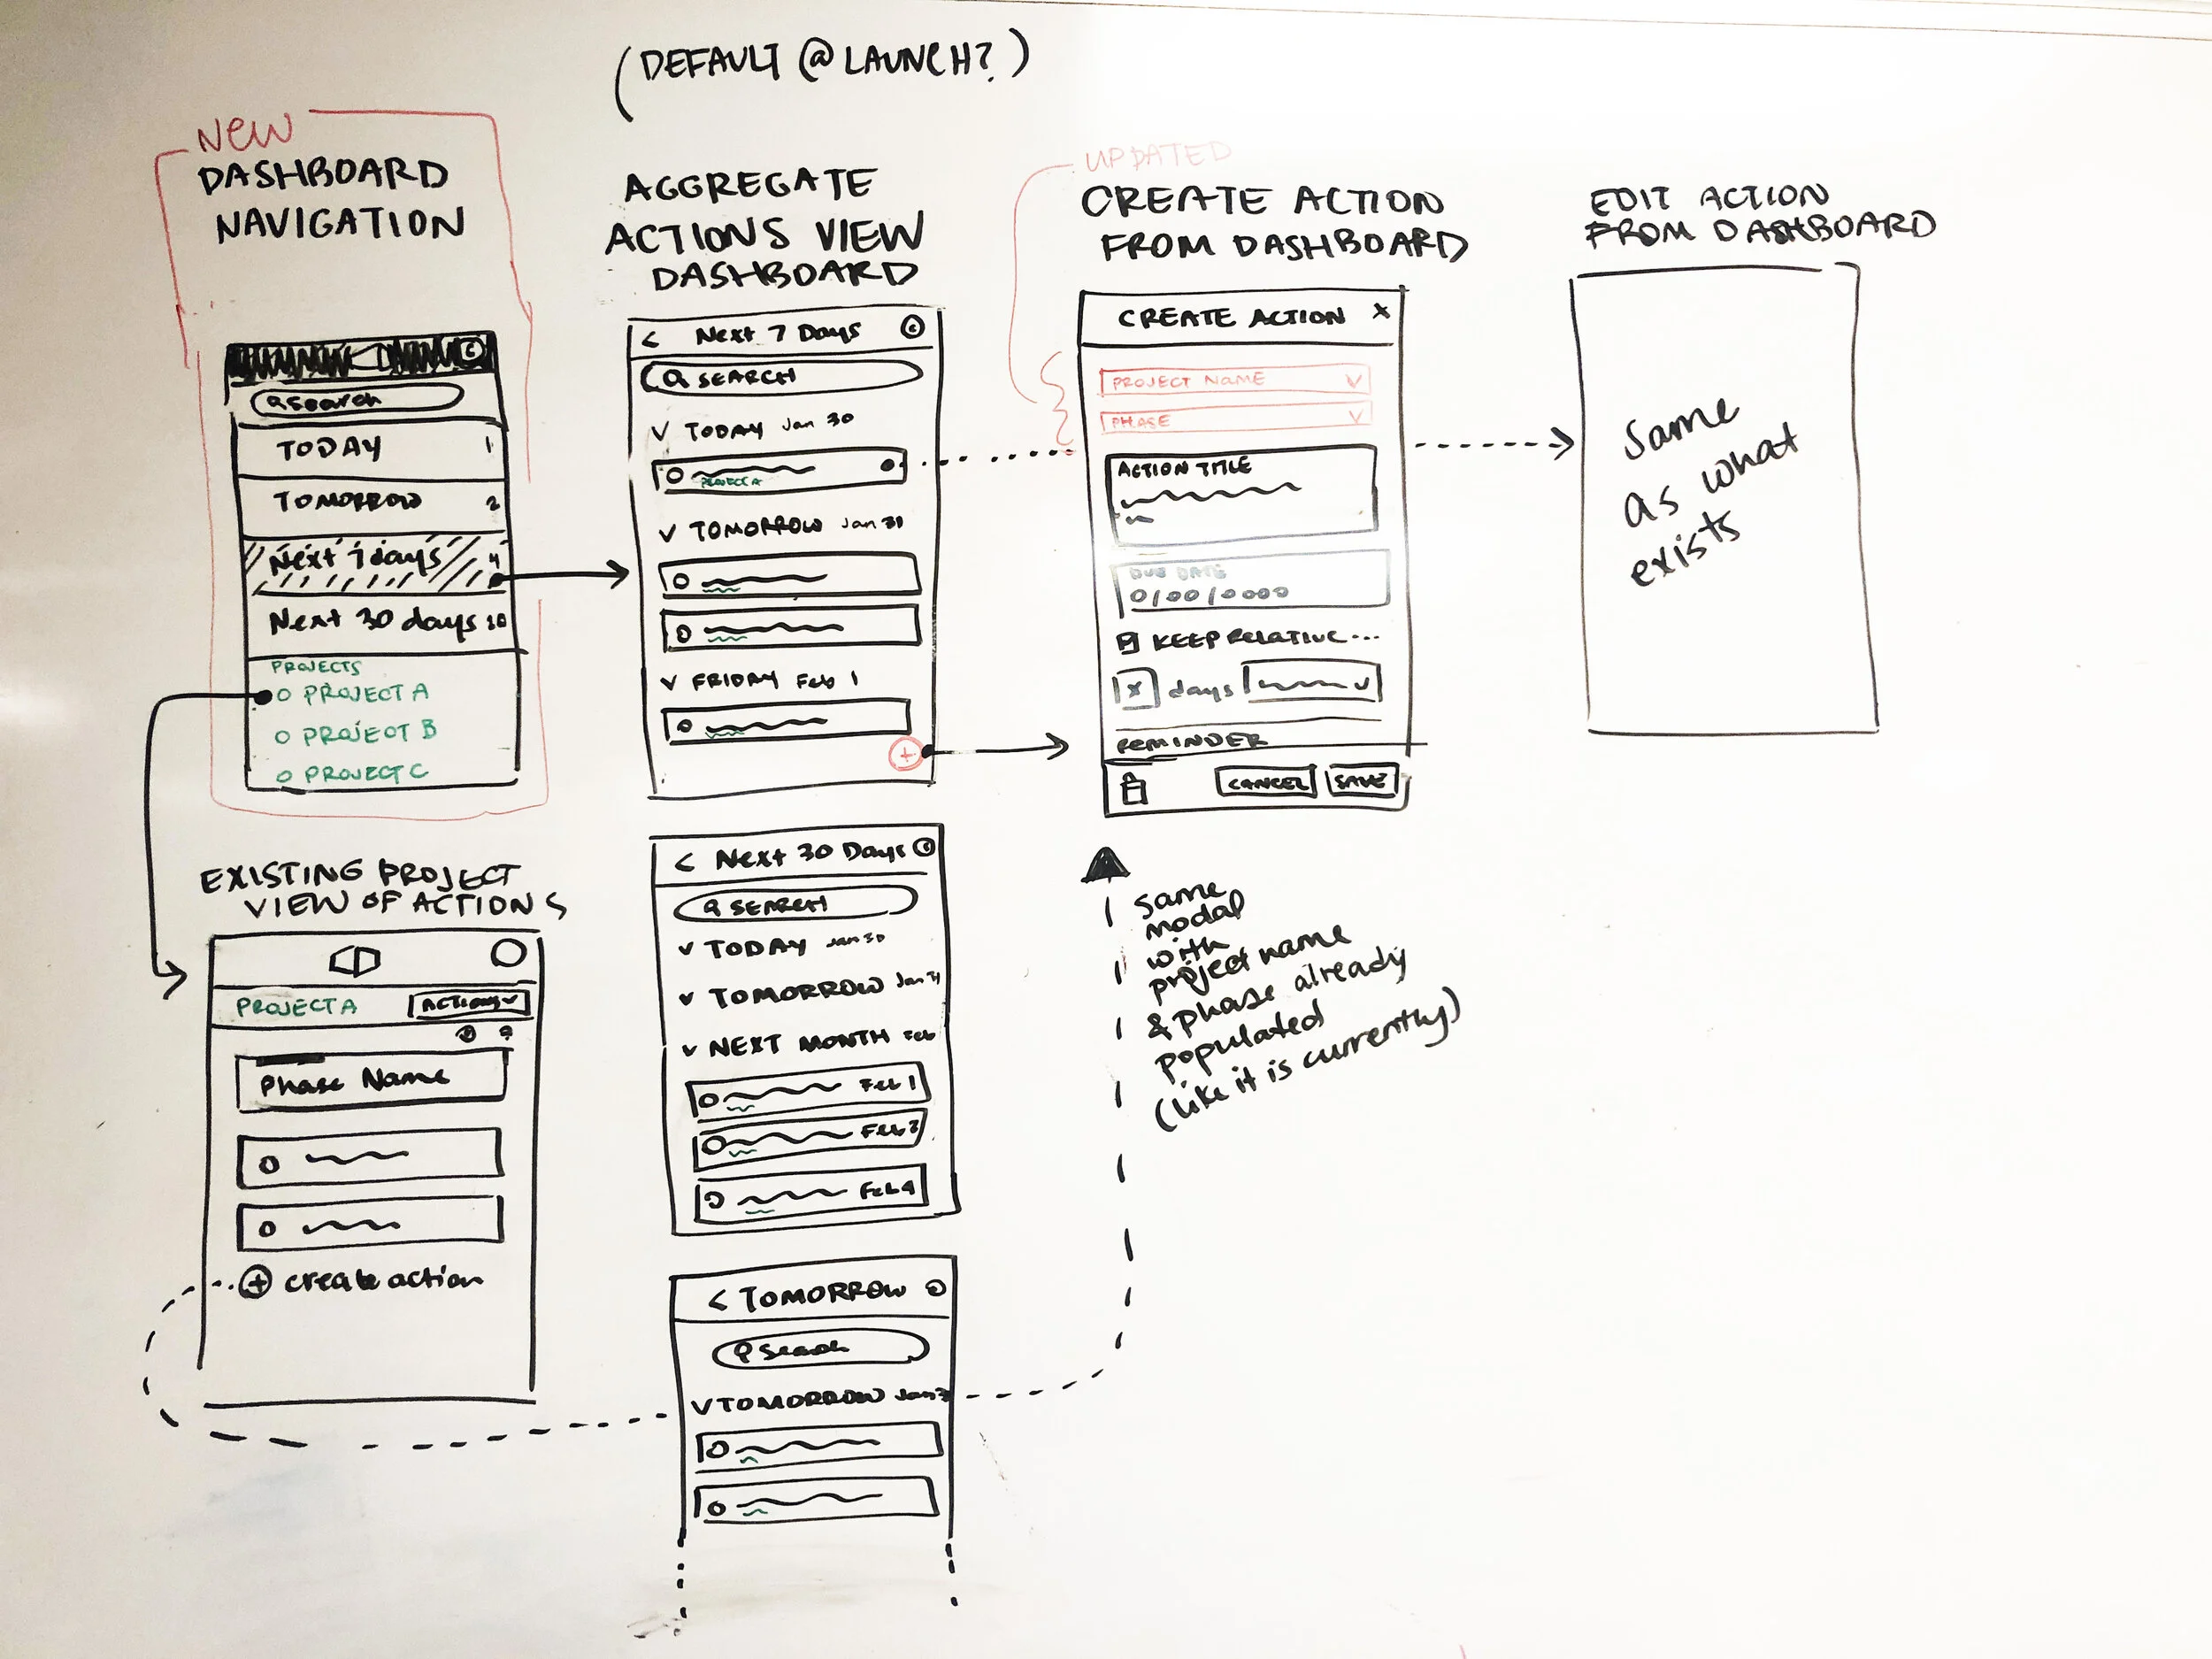 (DEFAULT @ LAUNCH?)
NEW
DASHBOARD
NAVIGATION
search
TODAY 1
TOMORROW 2
Next 7 days 4
Next 30 days 10
PROJECTS
PROJECT A
PROJECT B
PROJECT C
EXISTING PROJECT
VIEW OF ACTIONS
PROJECT A ACTIONS
Phase Name
+ create action
AGGREGATE
ACTIONS VIEW
DASHBOARD
< Next 7 Days C
SEARCH
TODAY Jan 30
PROJECT A
TOMORROW Jan 31
FRIDAY Feb 1
+
< Next 30 Days C
SEARCH
TODAY Jan 30
TOMORROW Jan 31
NEXT MONTH Feb
Feb 1
Feb 2
Feb 4
< TOMORROW
Search
TOMORROW Jan 31
UPDATED
CREATE ACTION
FROM DASHBOARD
CREATE ACTION X
PROJECT NAME
PHASE
ACTION TITLE
DUE DATE
0/00/0000
KEEP RELATIVE...
x days
REMINDER
CANCEL SAVE
same
modal
with
project name
& phase already
populated
(like it is currently)
EDIT ACTION
FROM DASHBOARD
Same
as what
exists